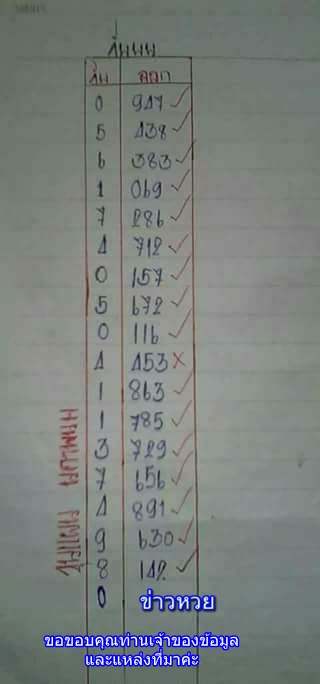 วิ่งบน
วิ่น ออก
0 947 ✓
5 438 ✓
6 383 ✓
1 069 ✓
7 286 ✓
4 712 ✓
0 157 ✓
5 672 ✓
0 116 ✓
4 453 ×
1 863 ✓
1 785 ✓
3 729 ✓
7 656 ✓
4 891 ✓
9 630 ✓
8 142 ✓
0 ข่าวหวย
ขอขอบคุณท่านเจ้าของข้อมูล
และแหล่งที่มาค่ะ